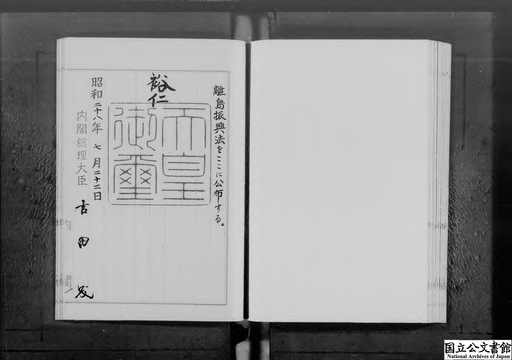 離島振興法をここに公布する。
裕仁
天皇
御璽
昭和二十八年七月二十二日
内閣総理大臣
吉田茂
国立公文書館
National Archives of Japan